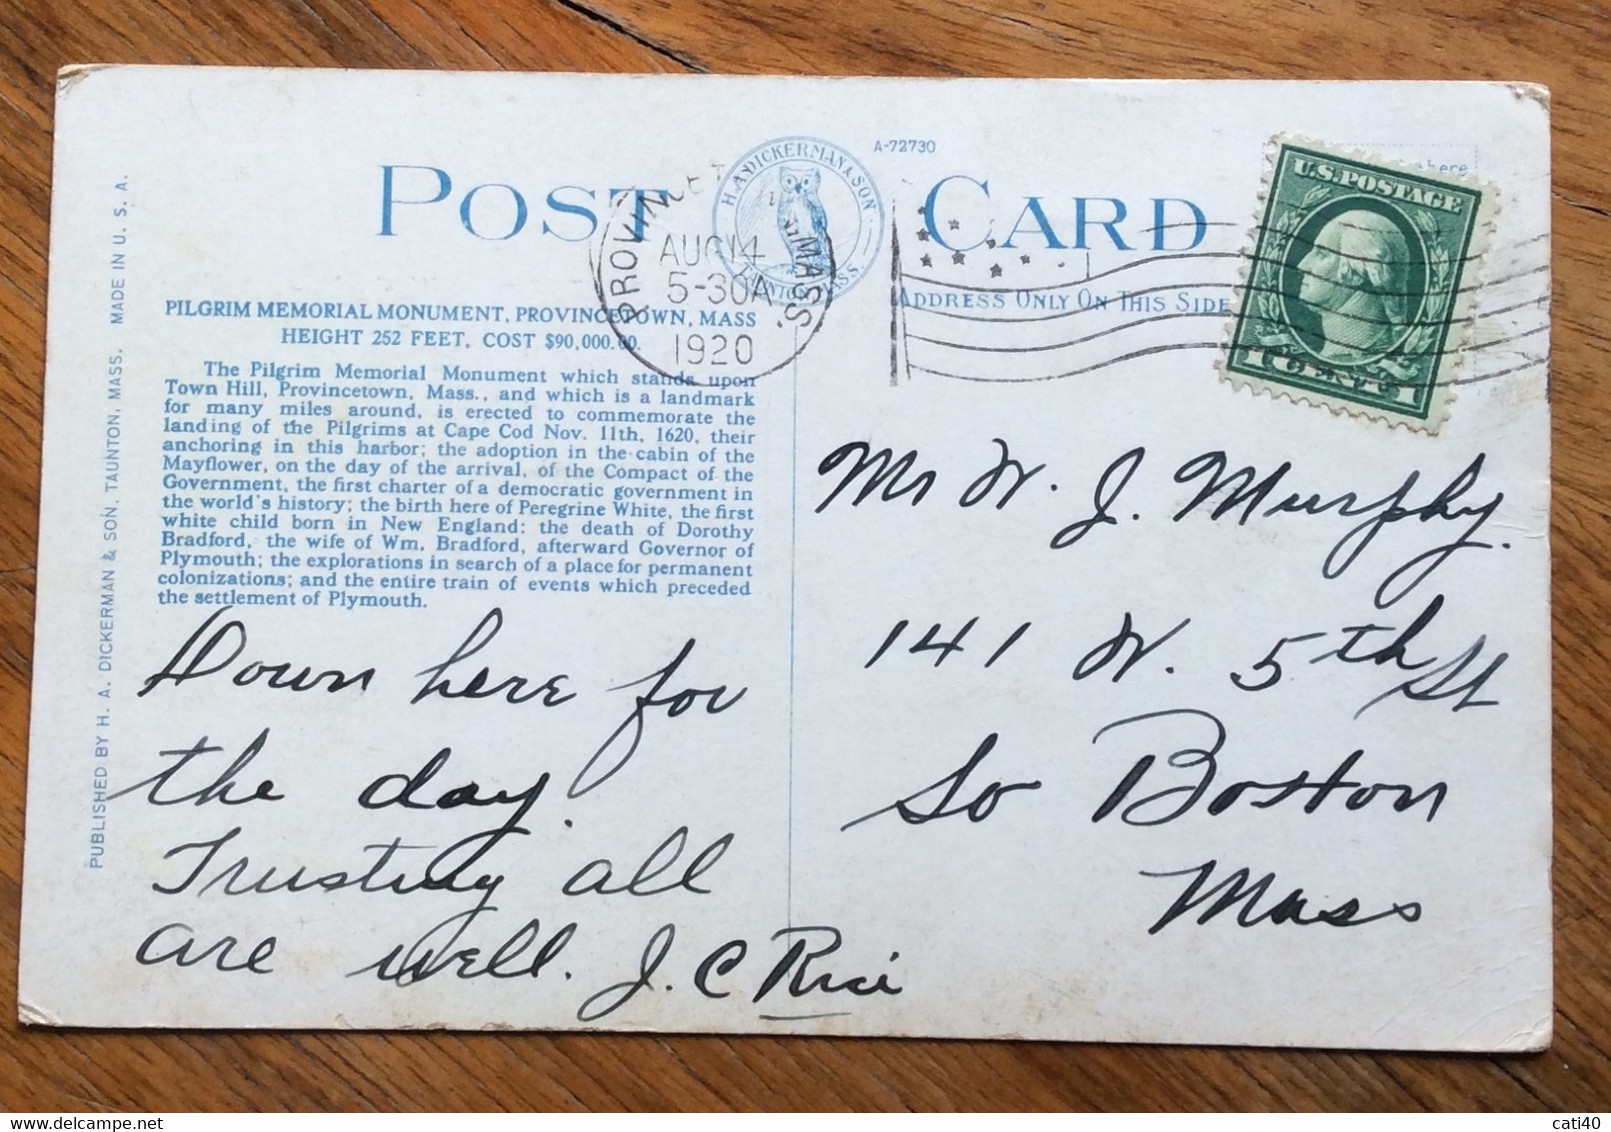 A-72730
POST CARD
H. A. DICKERMAN & SON
TAUNTON, MASS.
PROVINCET MASS.
AUG 14
5-30A
1920
U.S. POSTAGE
1 CENT 1
here
ADDRESS ONLY ON THIS SIDE
PILGRIM MEMORIAL MONUMENT, PROVINCETOWN, MASS
HEIGHT 252 FEET, COST $90,000.00.
The Pilgrim Memorial Monument which stands upon
Town Hill, Provincetown, Mass., and which is a landmark
for many miles around, is erected to commemorate the
landing of the Pilgrims at Cape Cod Nov. 11th, 1620, their
anchoring in this harbor; the adoption in the cabin of the
Mayflower, on the day of the arrival, of the Compact of the
Government, the first charter of a democratic government in
the world's history; the birth here of Peregrine White, the first
white child born in New England: the death of Dorothy
Bradford, the wife of Wm, Bradford, afterward Governor of
Plymouth; the explorations in search of a place for permanent
colonizations; and the entire train of events which preceded
the settlement of Plymouth.
PUBLISHED BY H. A. DICKERMAN & SON, TAUNTON, MASS. MADE IN U. S. A.
Down here for
the day.
Trusting all
are well. J. C Rice
Mr W. J. Murphy.
141 W. 5th St
So Boston
Mass
cati40